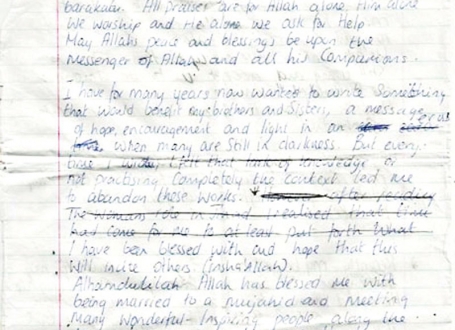 barakatah. All praises are for Allah alone, Him alone
We worship and He alone we ask for Help.
May Allahs peace and blessings be upon the
messenger of Allah and all his Companions.
I have for many years now wanted to write Something
that would benefit my brothers and Sisters, a message
of hope, encouragement and light in an
when many are Still in darkness. But every
time I I felt that lack of knowledge or
not practising Completely the context led me
to abandon these works. after reading
The Womans role in Jihad I realised that time
had come for me to at least put forth What
I have been blessed with and hope that this
Will incite others. (Insha'Allah).
Alhamdulilah Allah has blessed me with
being married to a mujahid and meeting
Many Wonderful Inspiring people along the